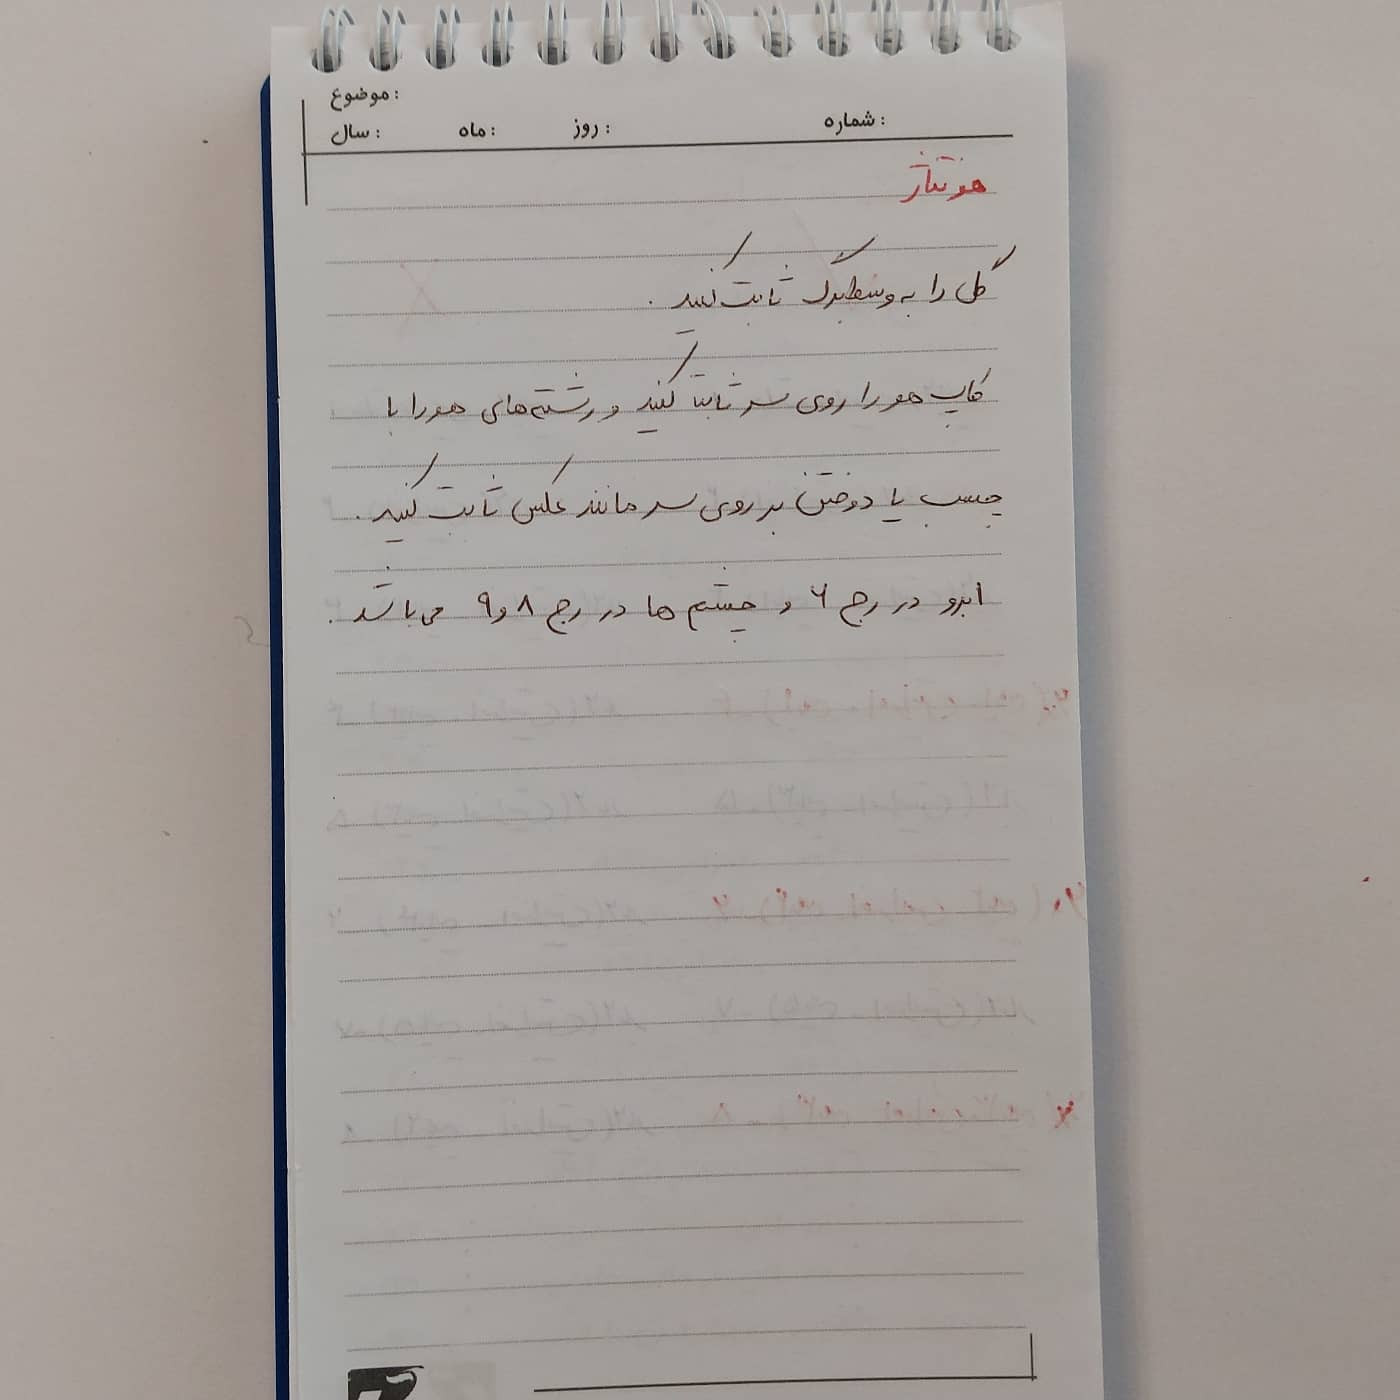 موضوع:
شماره: روز: ماه: سال:
مونتاژ
گل را به وسط برگ ثابت کنید.
کاپ مو را روی سر ثابت کنید و رشته‌های مو را با
چسب یا دوختن بر روی سر مانند عکس ثابت کنید.
ابرو در رج ۶ و چشم ها در رج ۸ و ۹ می باشد.